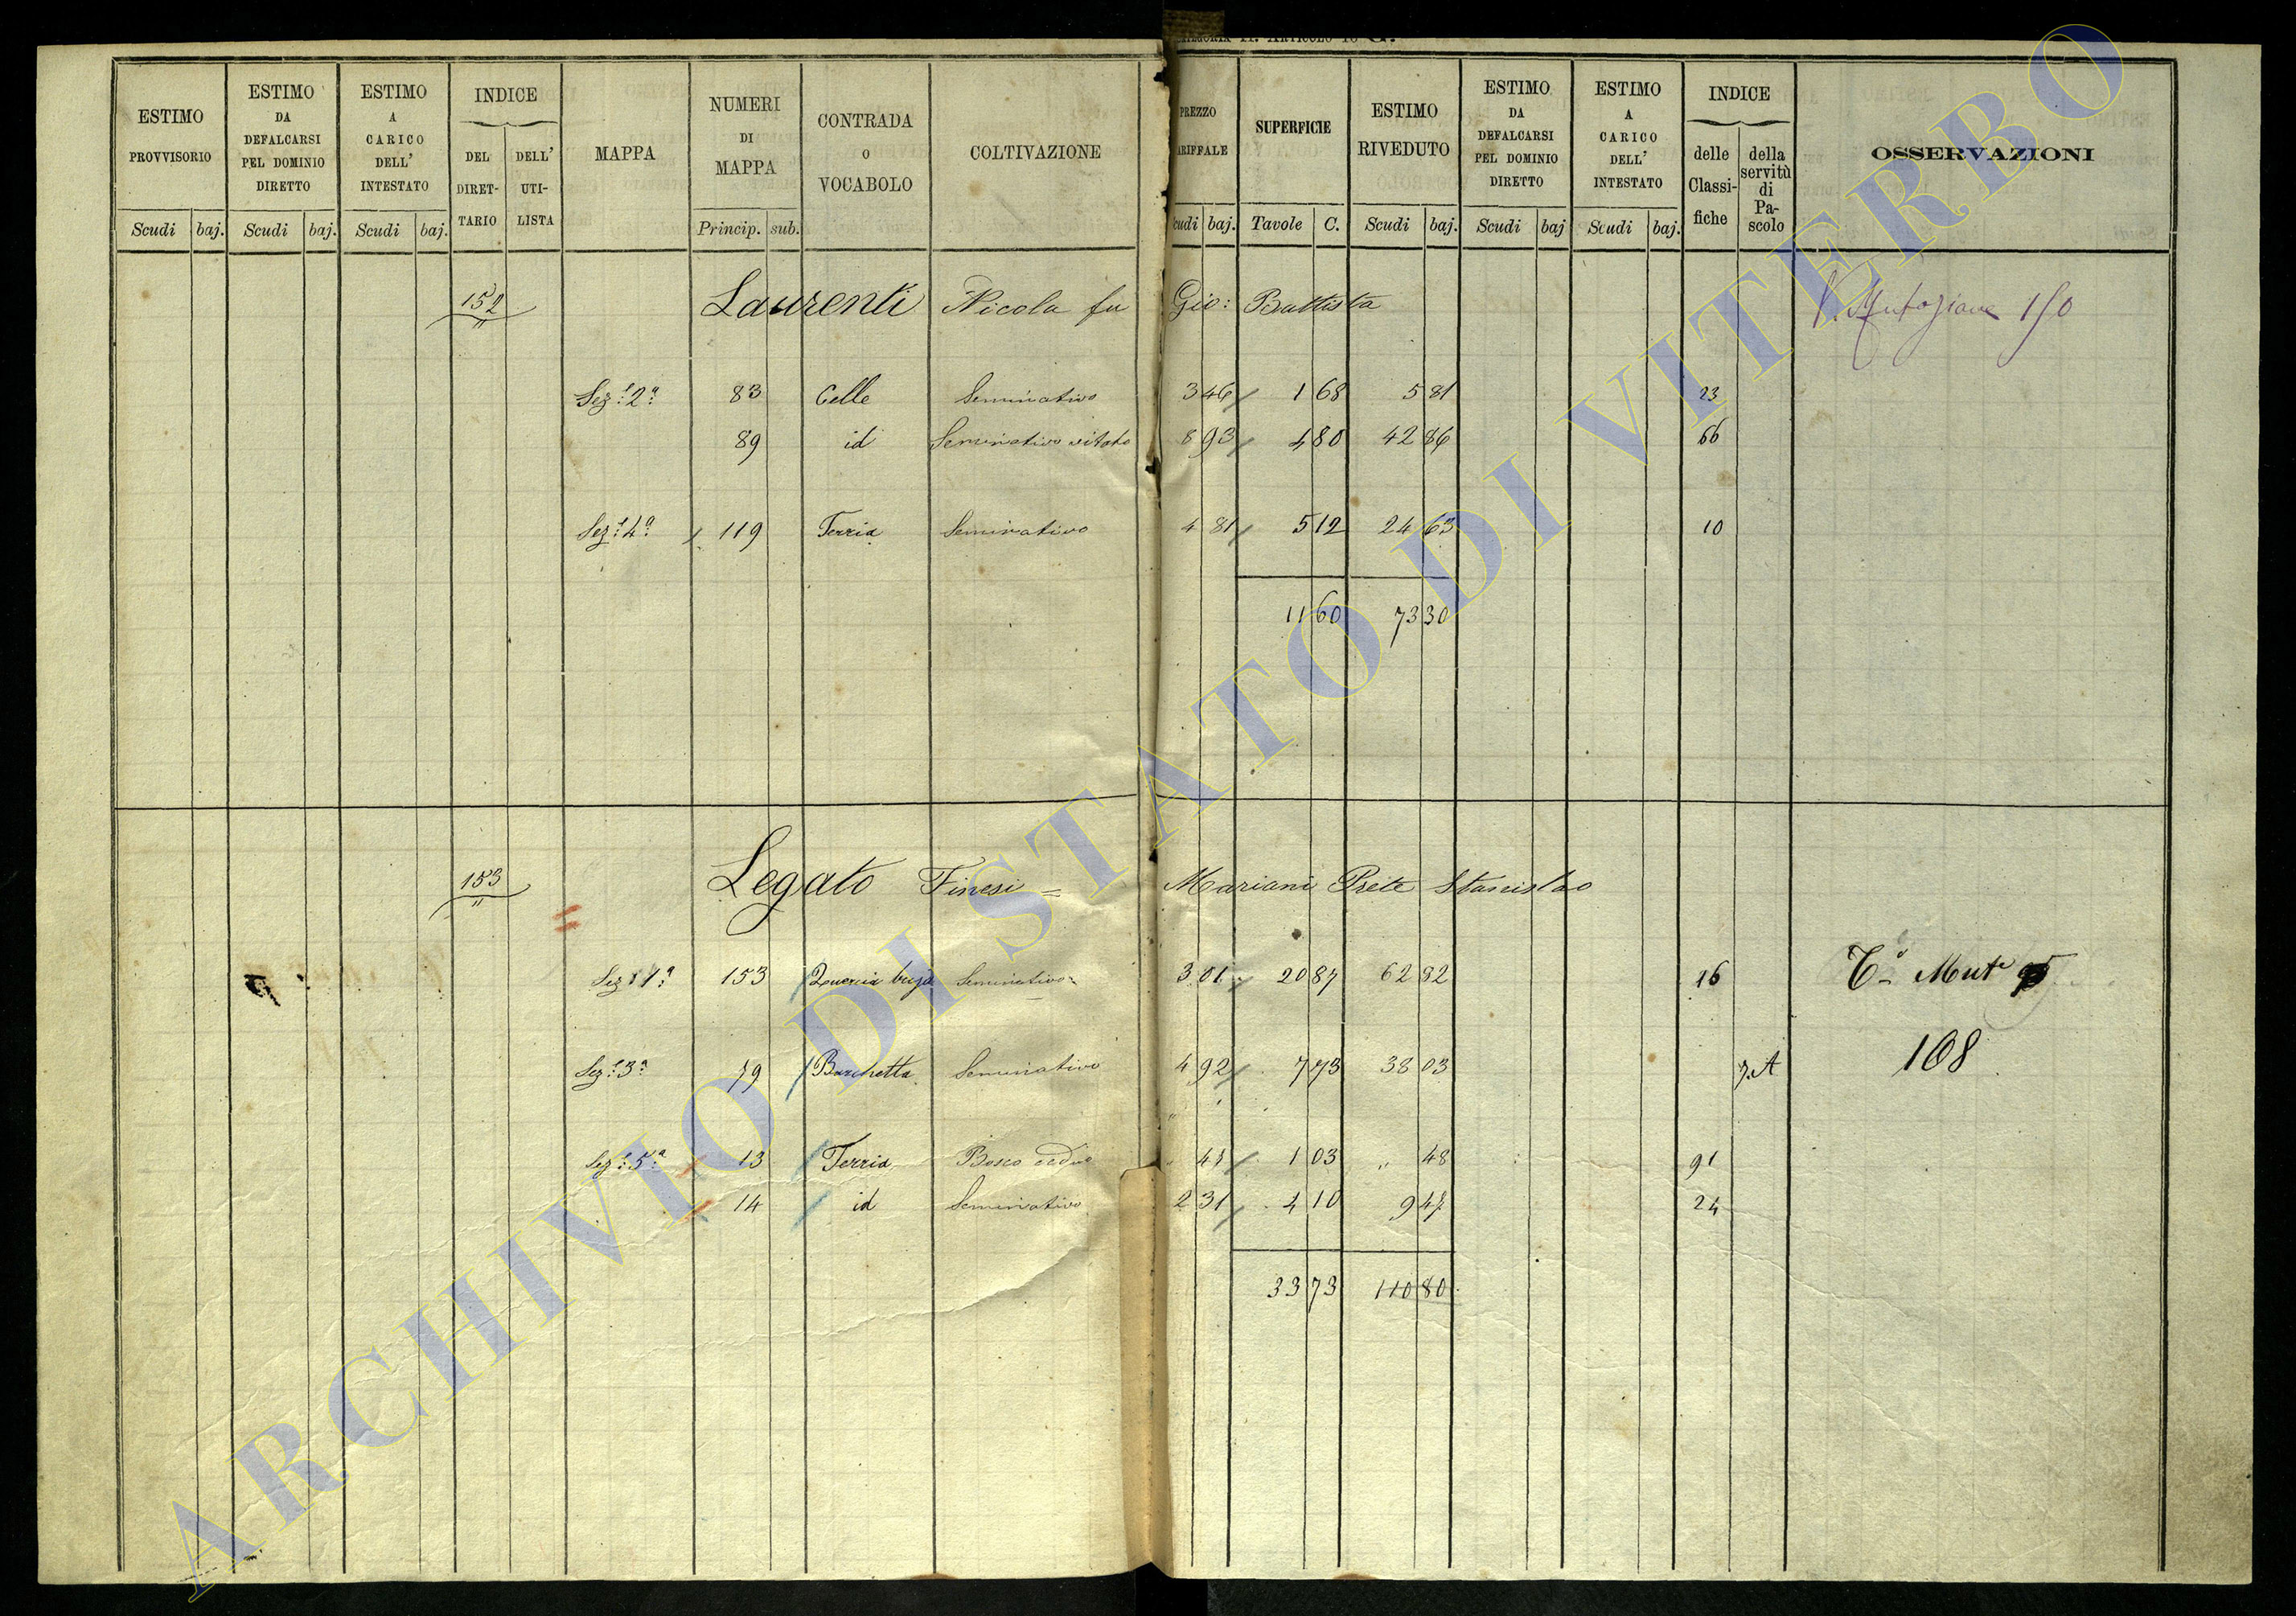 ESTIMO PROVVISORIO
ESTIMO DA DEFALCARSI PEL DOMINIO DIRETTO
ESTIMO A CARICO DELL' INTESTATO
INDICE
DEL DIRET-TARIO
DELL' UTI-LISTA
MAPPA
NUMERI DI MAPPA
CONTRADA O VOCABOLO
COLTIVAZIONE
Scudi baj. Scudi baj. Scudi baj. Princip. sub.
ARTICOLO
PREZZO
SUPERFICIE
ESTIMO RIVEDUTO
ESTIMO DA DEFALCARSI PEL DOMINIO DIRETTO
ESTIMO A CARICO DELL' INTESTATO
INDICE
delle Classi-fiche
della servitù di Pa-scolo
OSSERVAZIONI
baj. Tavole C. Scudi baj. Scudi baj Scudi baj.
152 Laurenti Nicola fu Gio: Battista
Sez.e 2a 83 Celle Seminativo 3 46 1 68 5 81 23
89 id Seminativo vitato 8 93 4 80 42 86 66
Sez.e 4a 119 Terria Seminativo 4 81 5 12 24 63 10
11 60 73 30
153 Legato Finesi = Mariani Prete Stanislao
Sez.e 1a 153 Quercia bugia Seminativo 3 01 20 87 62 82 16
Ta Mute
Sez.e 3a 79 Barchetta Seminativo 4 92 7 73 38 03 7.A
108
Sez.e 5a 13 Terria Bosco ceduo " 47 1 03 " 48 91
14 id Seminativo 2 31 4 10 9 47 24
33 73 110 80
ARCHIVIO DI STATO DI VITERBO